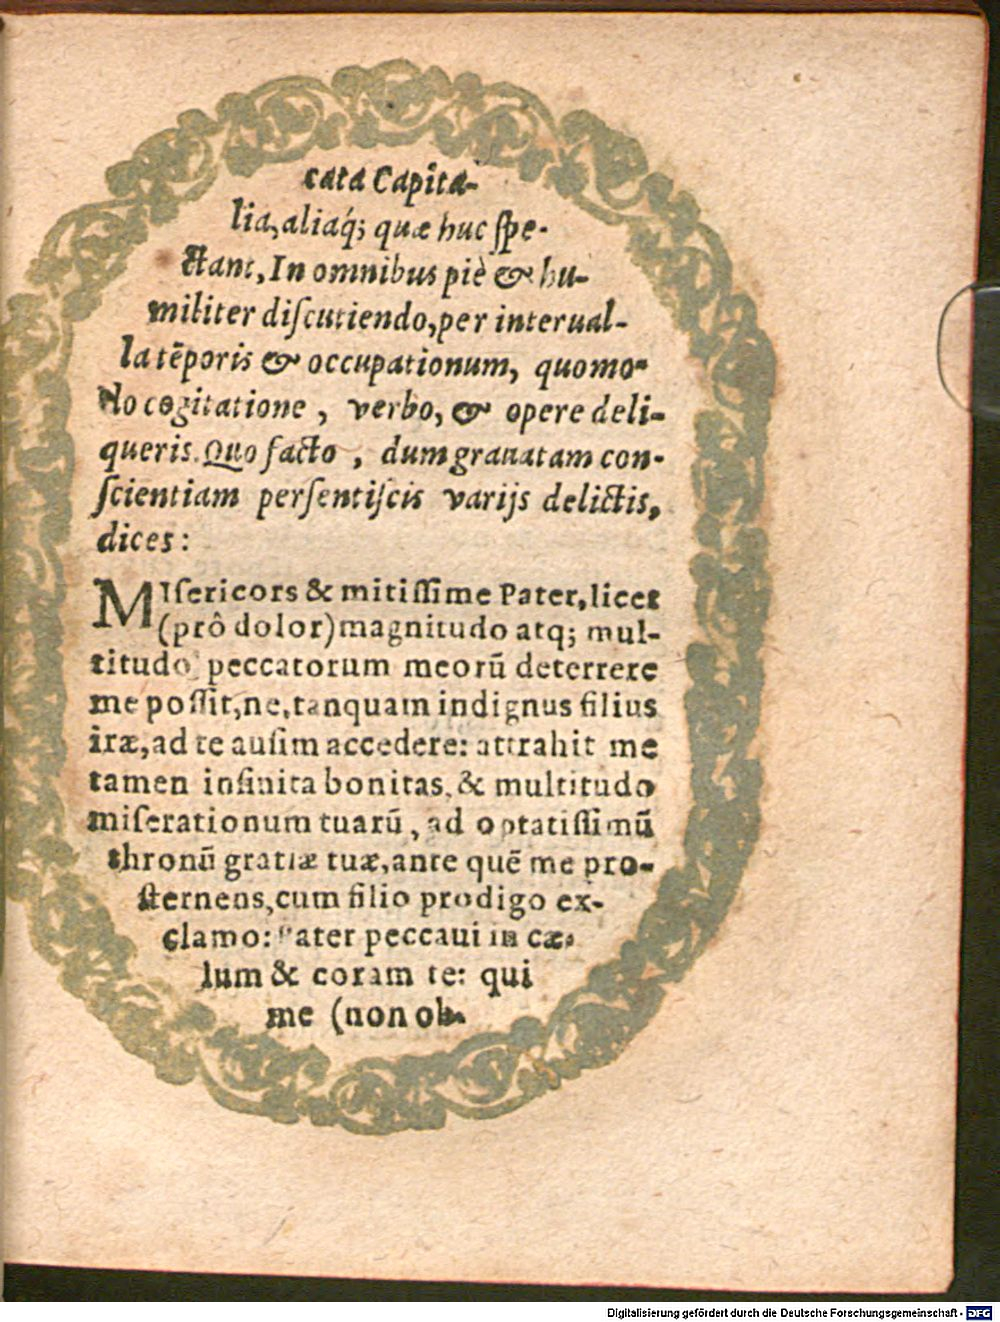 cata Capita-
lia, aliaq́; quæ huc ſpe-
ctant, In omnibus piè & hu-
militer diſcutiendo, per interual-
la tēporis & occupationum, quomo-
do cogitatione, verbo, & opere deli-
queris. Quo facto, dum grauatam con-
ſcientiam perſentiſcis varijs delictis,
dices:
MIſericors & mitiſſime Pater, licet
(prô dolor) magnitudo atq; mul-
titudo peccatorum meorū deterrere
me poſſit, ne, tanquam indignus filius
iræ, ad te auſim accedere: attrahit me
tamen infinita bonitas, & multitudo
miſerationum tuarū, ad optatiſſimū
thronū gratiæ tuæ, ante quē me pro-
ſternens, cum filio prodigo ex-
clamo: Pater peccaui in cæ-
lum & coram te: qui
me (non ob-
Digitalisierung gefördert durch die Deutsche Forschungsgemeinschaft - DFG